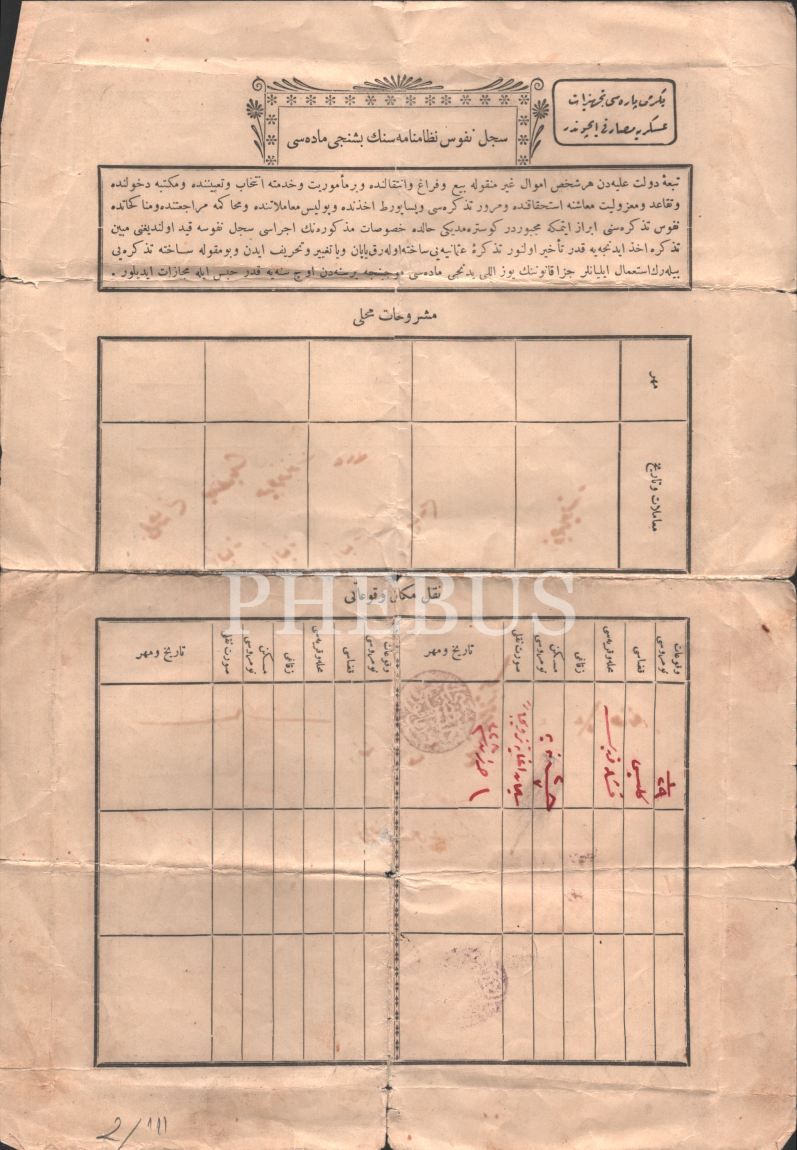 يكرمى پاره سى تجهيزات
عسكريه مصارفى ايچوندر
سجل نفوس نظامنامه سنك بشنجى ماده سى
تبعهٔ دولت عليه دن هر شخص اموال غير منقوله بيع و فراغ و انتقالنده و بر مأموريت و خدمته انتخاب و تعييننده و مكتبه دخولنده
و تقاعد و معزوليت معاشنه استحقاقنده و مرور تذكره سى و پساپورط اخذنده و پوليس معاملاتنده و محاكمه مراجعتنده و مناكحاتده
نفوس تذكره سنى ابراز ايتمكه مجبوردر كوستره مديكى حالده خصوصات مذكوره نك اجراسى سجل نفوسه قيد اولنديغنى مبين
تذكره اخذ ايدنجه يه قدر تأخير اولنور تذكرهٔ عثمانيه يى ساخته اوله رق ياپان ويا تغيير و تحريف ايدن و بو مقوله ساخته تذكره يى
بيله رك استعمال ايليانلر جزا قانوننك يوز اللى يدنجى ماده سى موجبنجه بر سنه دن اوچ سنه يه قدر حبس ايله مجازات ايديلور .
مشروحات محلى
مهر
معاملات و تاريخ
نقل مكان وقوعاتى
PHEBUS
وقوعات نومروسى
قضاسى
محله و قريه سى
زقاغى
مسكن نومروسى
صورت نقلى
تاريخ و مهر
وقوعات نومروسى
قضاسى
محله و قريه سى
زقاغى
مسكن نومروسى
صورت نقلى
تاريخ و مهر
2/111